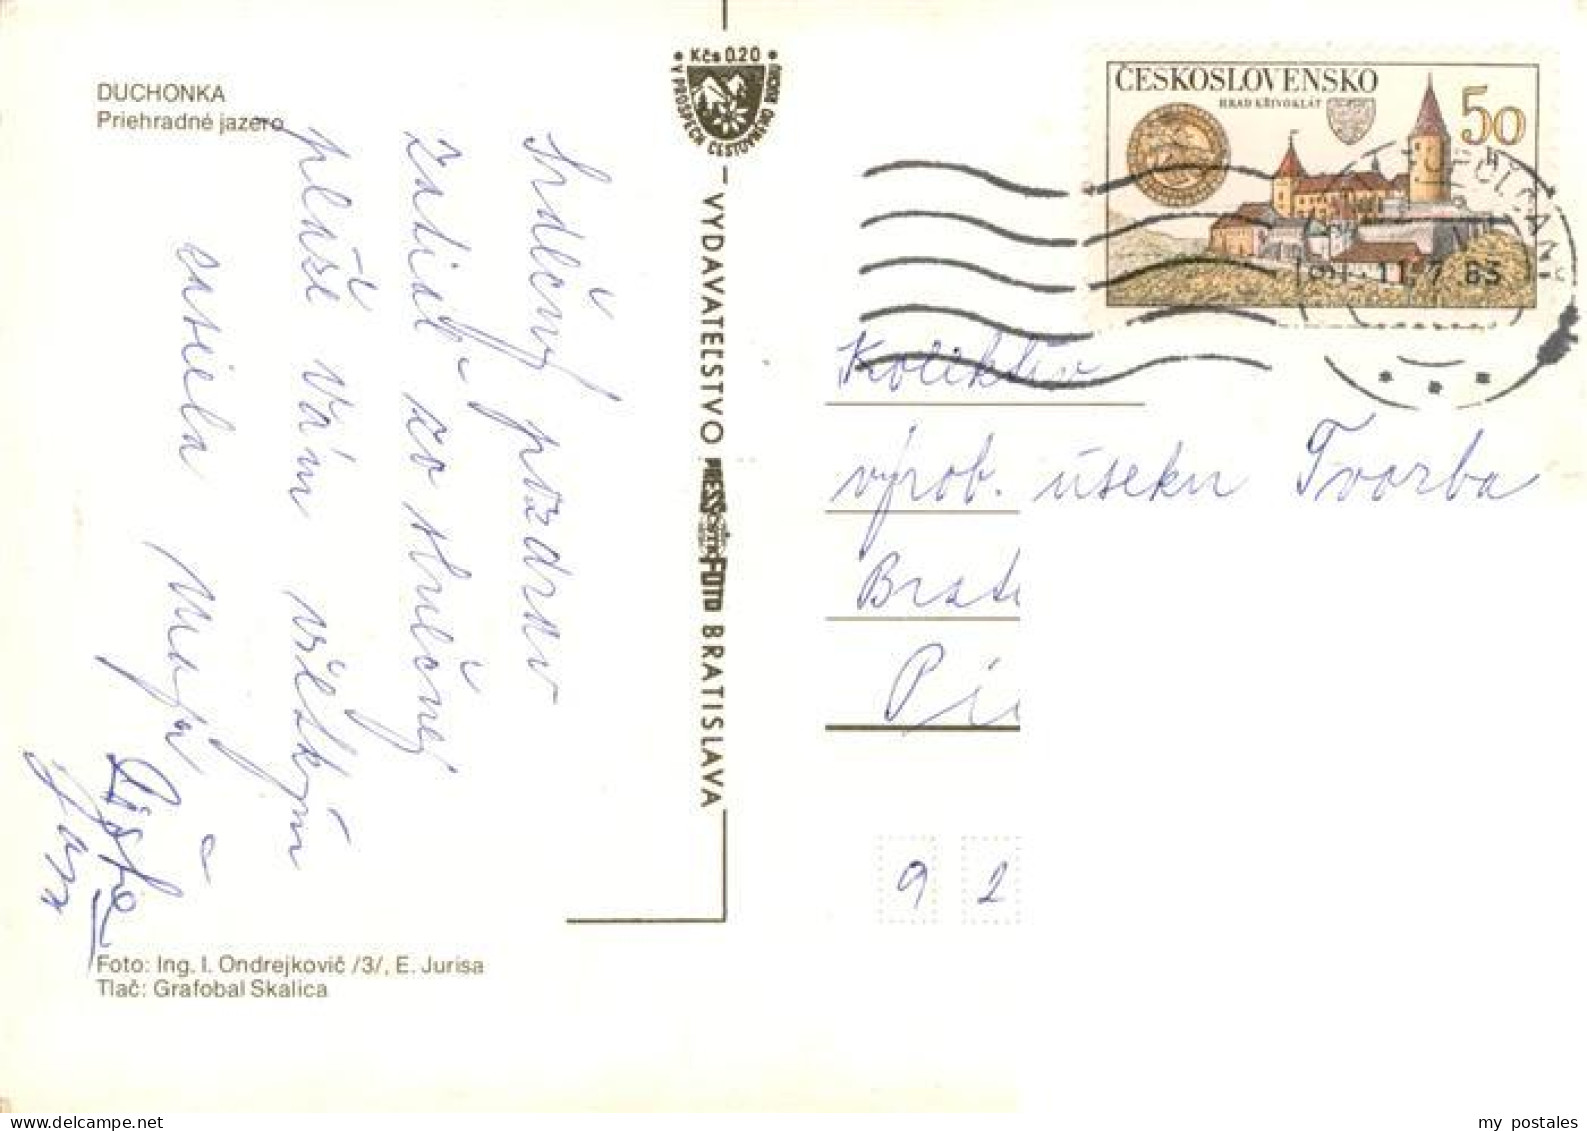 DUCHONKA
Priehradné jazero
Srdečný pozdrav
zatiaľ zo slnečnej
pláže Vám všetkým
zasiela Maja
Jana
Foto: Ing. I. Ondrejkovič /3/, E. Jurisa
Tlač: Grafobal Skalica
Kčs 0.20
V PROSPECH CESTOVNÉHO RUCHU
VYDAVATEĽSTVO PRESSFOTO BRATISLAVA
ČESKOSLOVENSKO
HRAD KŘIVOKLÁT
50 h
11.7.83
Kolektív
výrob. úseku Tvorba
Brati
Pi
9 2
my postales